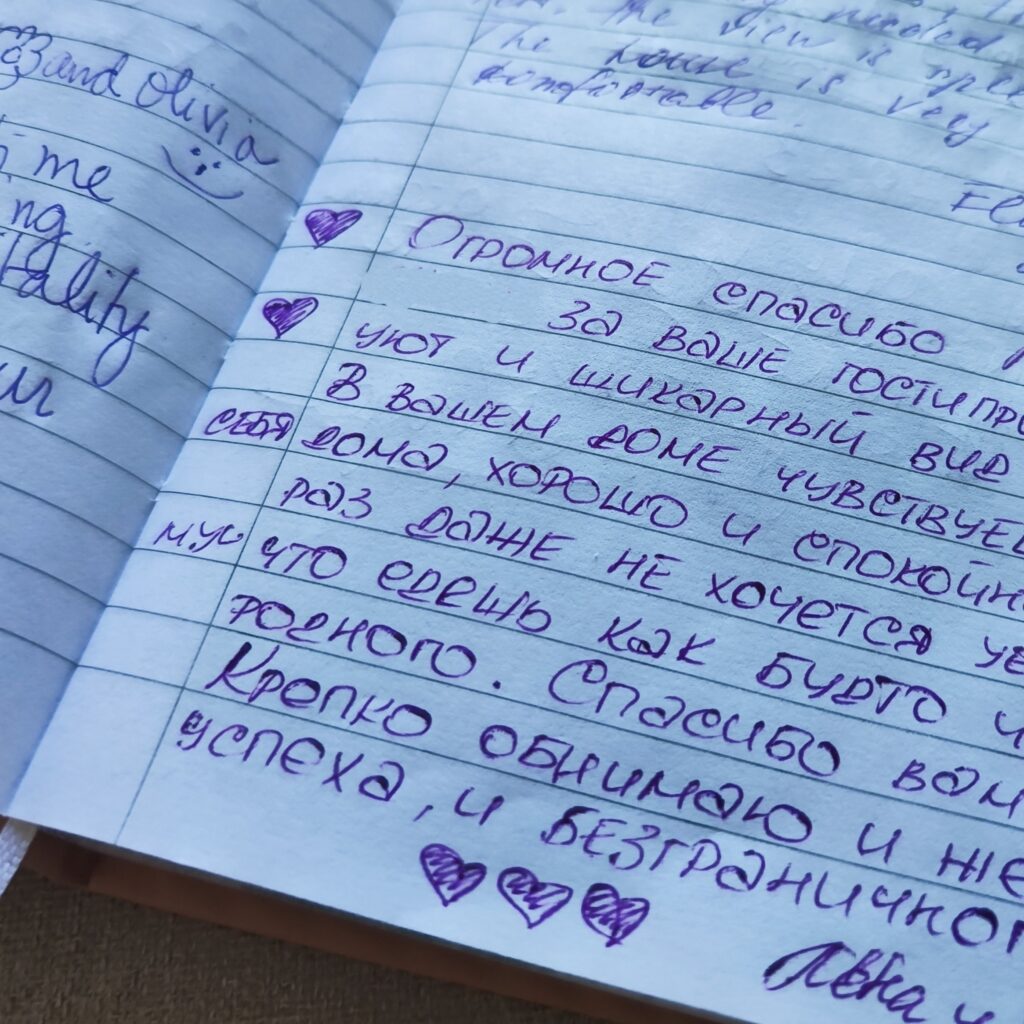 and Olivia
me
ng
tality
needed
The view is
The house is very
comfortable.
Огромное спасибо
за ваше гостипри
уют и шикарный вид
В вашем доме чувствуе
себя дома, хорошо и спокойн
раз даже не хочется уе
что едешь как будто ч
родного. Спасибо вам
Крепко обнимаю и же
успеха, и безгранично